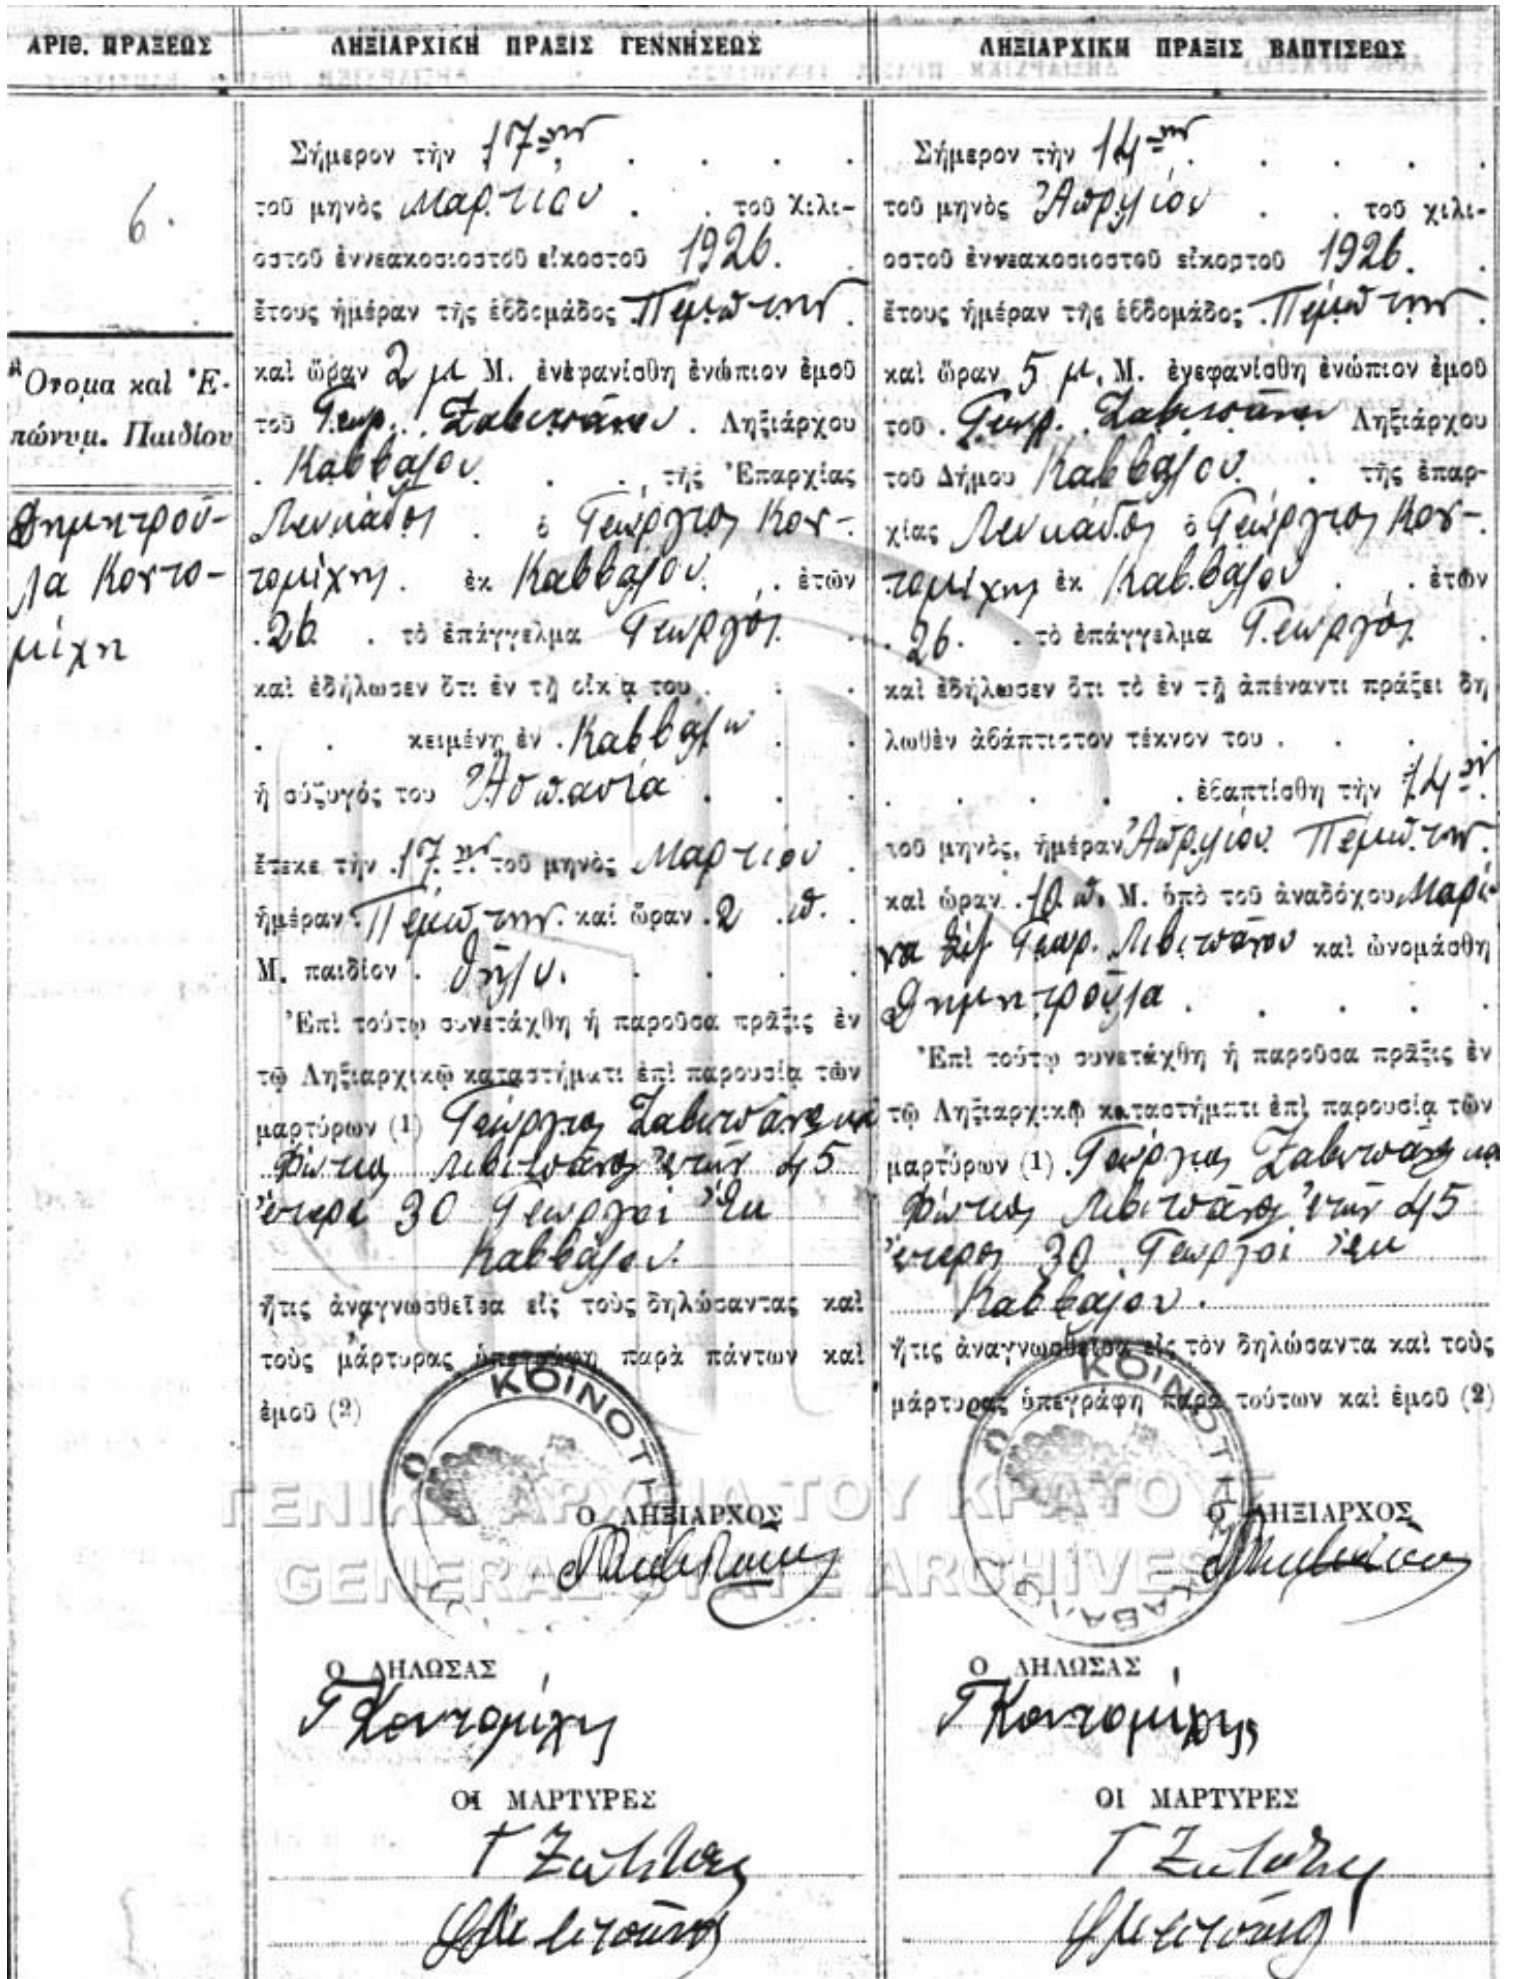 ΑΡΙΘ. ΠΡΑΞΕΩΣ
6.
Ὄνομα καὶ Ἐ-
πώνυμ. Παιδίου
Δημητρού-
λα Κοντο-
μίχη
ΛΗΞΙΑΡΧΙΚΗ ΠΡΑΞΙΣ ΓΕΝΝΗΣΕΩΣ
Σήμερον τὴν 17ην
τοῦ μηνὸς Μαρτίου . . τοῦ χιλι-
οστοῦ ἐννεακοσιοστοῦ εἰκοστοῦ 1926.
ἔτους ἡμέραν τῆς ἑβδομάδος Πέμπτην
καὶ ὥραν 2 μ. Μ. ἐνεφανίσθη ἐνώπιον ἐμοῦ
τοῦ Γεωρ. Ληξιάρχου
Καββάλου . . τῆς Ἐπαρχίας
Λευκάδος . ὁ Γεώργιος Κον-
τομίχης . ἐκ Καββάλου . ἐτῶν
26 . τὸ ἐπάγγελμα Γεωργός
καὶ ἐδήλωσεν ὅτι ἐν τῇ οἰκίᾳ του . . .
. . κειμένῃ ἐν Καββάλῳ . .
ἡ σύζυγός του Ἀσπασία . . .
ἔτεκε τὴν 17ην τοῦ μηνὸς Μαρτίου
ἡμέραν Πέμπτην καὶ ὥραν 2 π.
Μ. παιδίον . θῆλυ. . . .
Ἐπὶ τούτῳ συνετάχθη ἡ παροῦσα πρᾶξις ἐν
τῷ Ληξιαρχικῷ καταστήματι ἐπὶ παρουσίᾳ τῶν
μαρτύρων (1) Γεώργιος
Φώτιος ἐτῶν 45
30 Γεωργοί ἐκ
Καββάλου.
ἥτις ἀναγνωσθεῖσα εἰς τοὺς δηλώσαντας καὶ
τοὺς μάρτυρας ὑπεγράφη παρὰ πάντων καὶ
ἐμοῦ (2)
ΚΟΙΝΟΤΗ
Ο ΛΗΞΙΑΡΧΟΣ
Ο ΔΗΛΩΣΑΣ
Γ Κοντομίχης
ΟΙ ΜΑΡΤΥΡΕΣ
ΛΗΞΙΑΡΧΙΚΗ ΠΡΑΞΙΣ ΒΑΠΤΙΣΕΩΣ
Σήμερον τὴν 14ην
τοῦ μηνὸς Ἀπριλίου . . τοῦ χιλι-
οστοῦ ἐννεακοσιοστοῦ εἰκοστοῦ 1926.
ἔτους ἡμέραν τῆς ἑβδομάδος Πέμπτην
καὶ ὥραν 5 μ. Μ. ἐνεφανίσθη ἐνώπιον ἐμοῦ
τοῦ Γεωρ. Ληξιάρχου
τοῦ Δήμου Καββάλου . τῆς ἐπαρ-
χίας Λευκάδος ὁ Γεώργιος Κον-
τομίχης ἐκ Καββάλου . . ἐτῶν
26. . τὸ ἐπάγγελμα Γεωργός
καὶ ἐδήλωσεν ὅτι τὸ ἐν τῇ ἀπέναντι πράξει δη
λωθὲν ἀβάπτιστον τέκνον του . . . .
. . . . . ἐβαπτίσθη τὴν 14ην
τοῦ μηνὸς, ἡμέραν Ἀπριλίου Πέμπτην
καὶ ὥραν 10 π. Μ. ὑπὸ τοῦ ἀναδόχου Μαρί-
να Γεωρ. καὶ ὠνομάσθη
Δημητρούλα . . . .
Ἐπὶ τούτῳ συνετάχθη ἡ παροῦσα πρᾶξις ἐν
τῷ Ληξιαρχικῷ καταστήματι ἐπὶ παρουσίᾳ τῶν
μαρτύρων (1) Γεώργιος
Φώτιος ἐτῶν 45
30 Γεωργοί ἐκ
Καββάλου.
ἥτις ἀναγνωσθεῖσα εἰς τὸν δηλώσαντα καὶ τοὺς
μάρτυρας ὑπεγράφη παρὰ τούτων καὶ ἐμοῦ (2)
ΚΟΙΝΟΤΗ
Ο ΛΗΞΙΑΡΧΟΣ
Ο ΔΗΛΩΣΑΣ
Γ Κοντομίχης
ΟΙ ΜΑΡΤΥΡΕΣ
ΓΕΝΙΚΑ ΑΡΧΕΙΑ ΤΟΥ ΚΡΑΤΟΥΣ
GENERAL STATE ARCHIVES